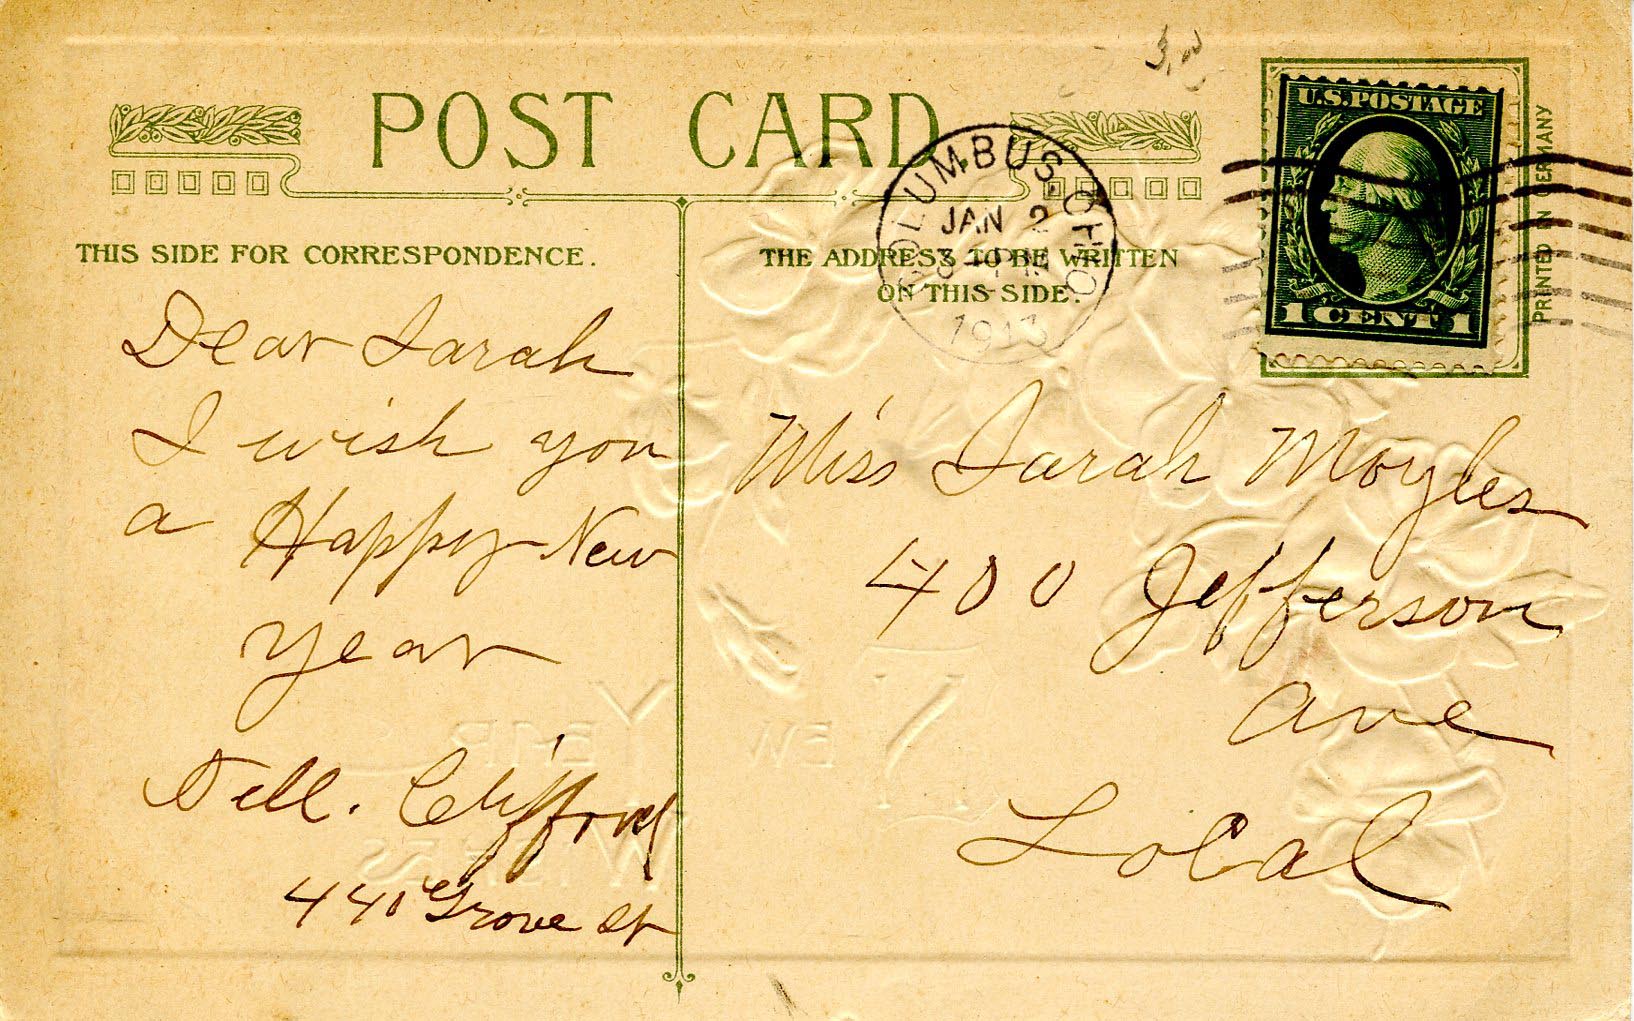 POST CARD
THIS SIDE FOR CORRESPONDENCE.
Dear Sarah
I wish you
a Happy New
Year
Nell. Clifford
440 Grove St
THE ADDRESS TO BE WRITTEN
ON THIS SIDE.
COLUMBUS, OHIO
JAN 2
3 - PM
1913
U.S. POSTAGE
1 CENT 1
PRINTED IN GERMANY
Miss Sarah Moyles
400 Jefferson
Ave
Local
NEW
YEAR
WISHES